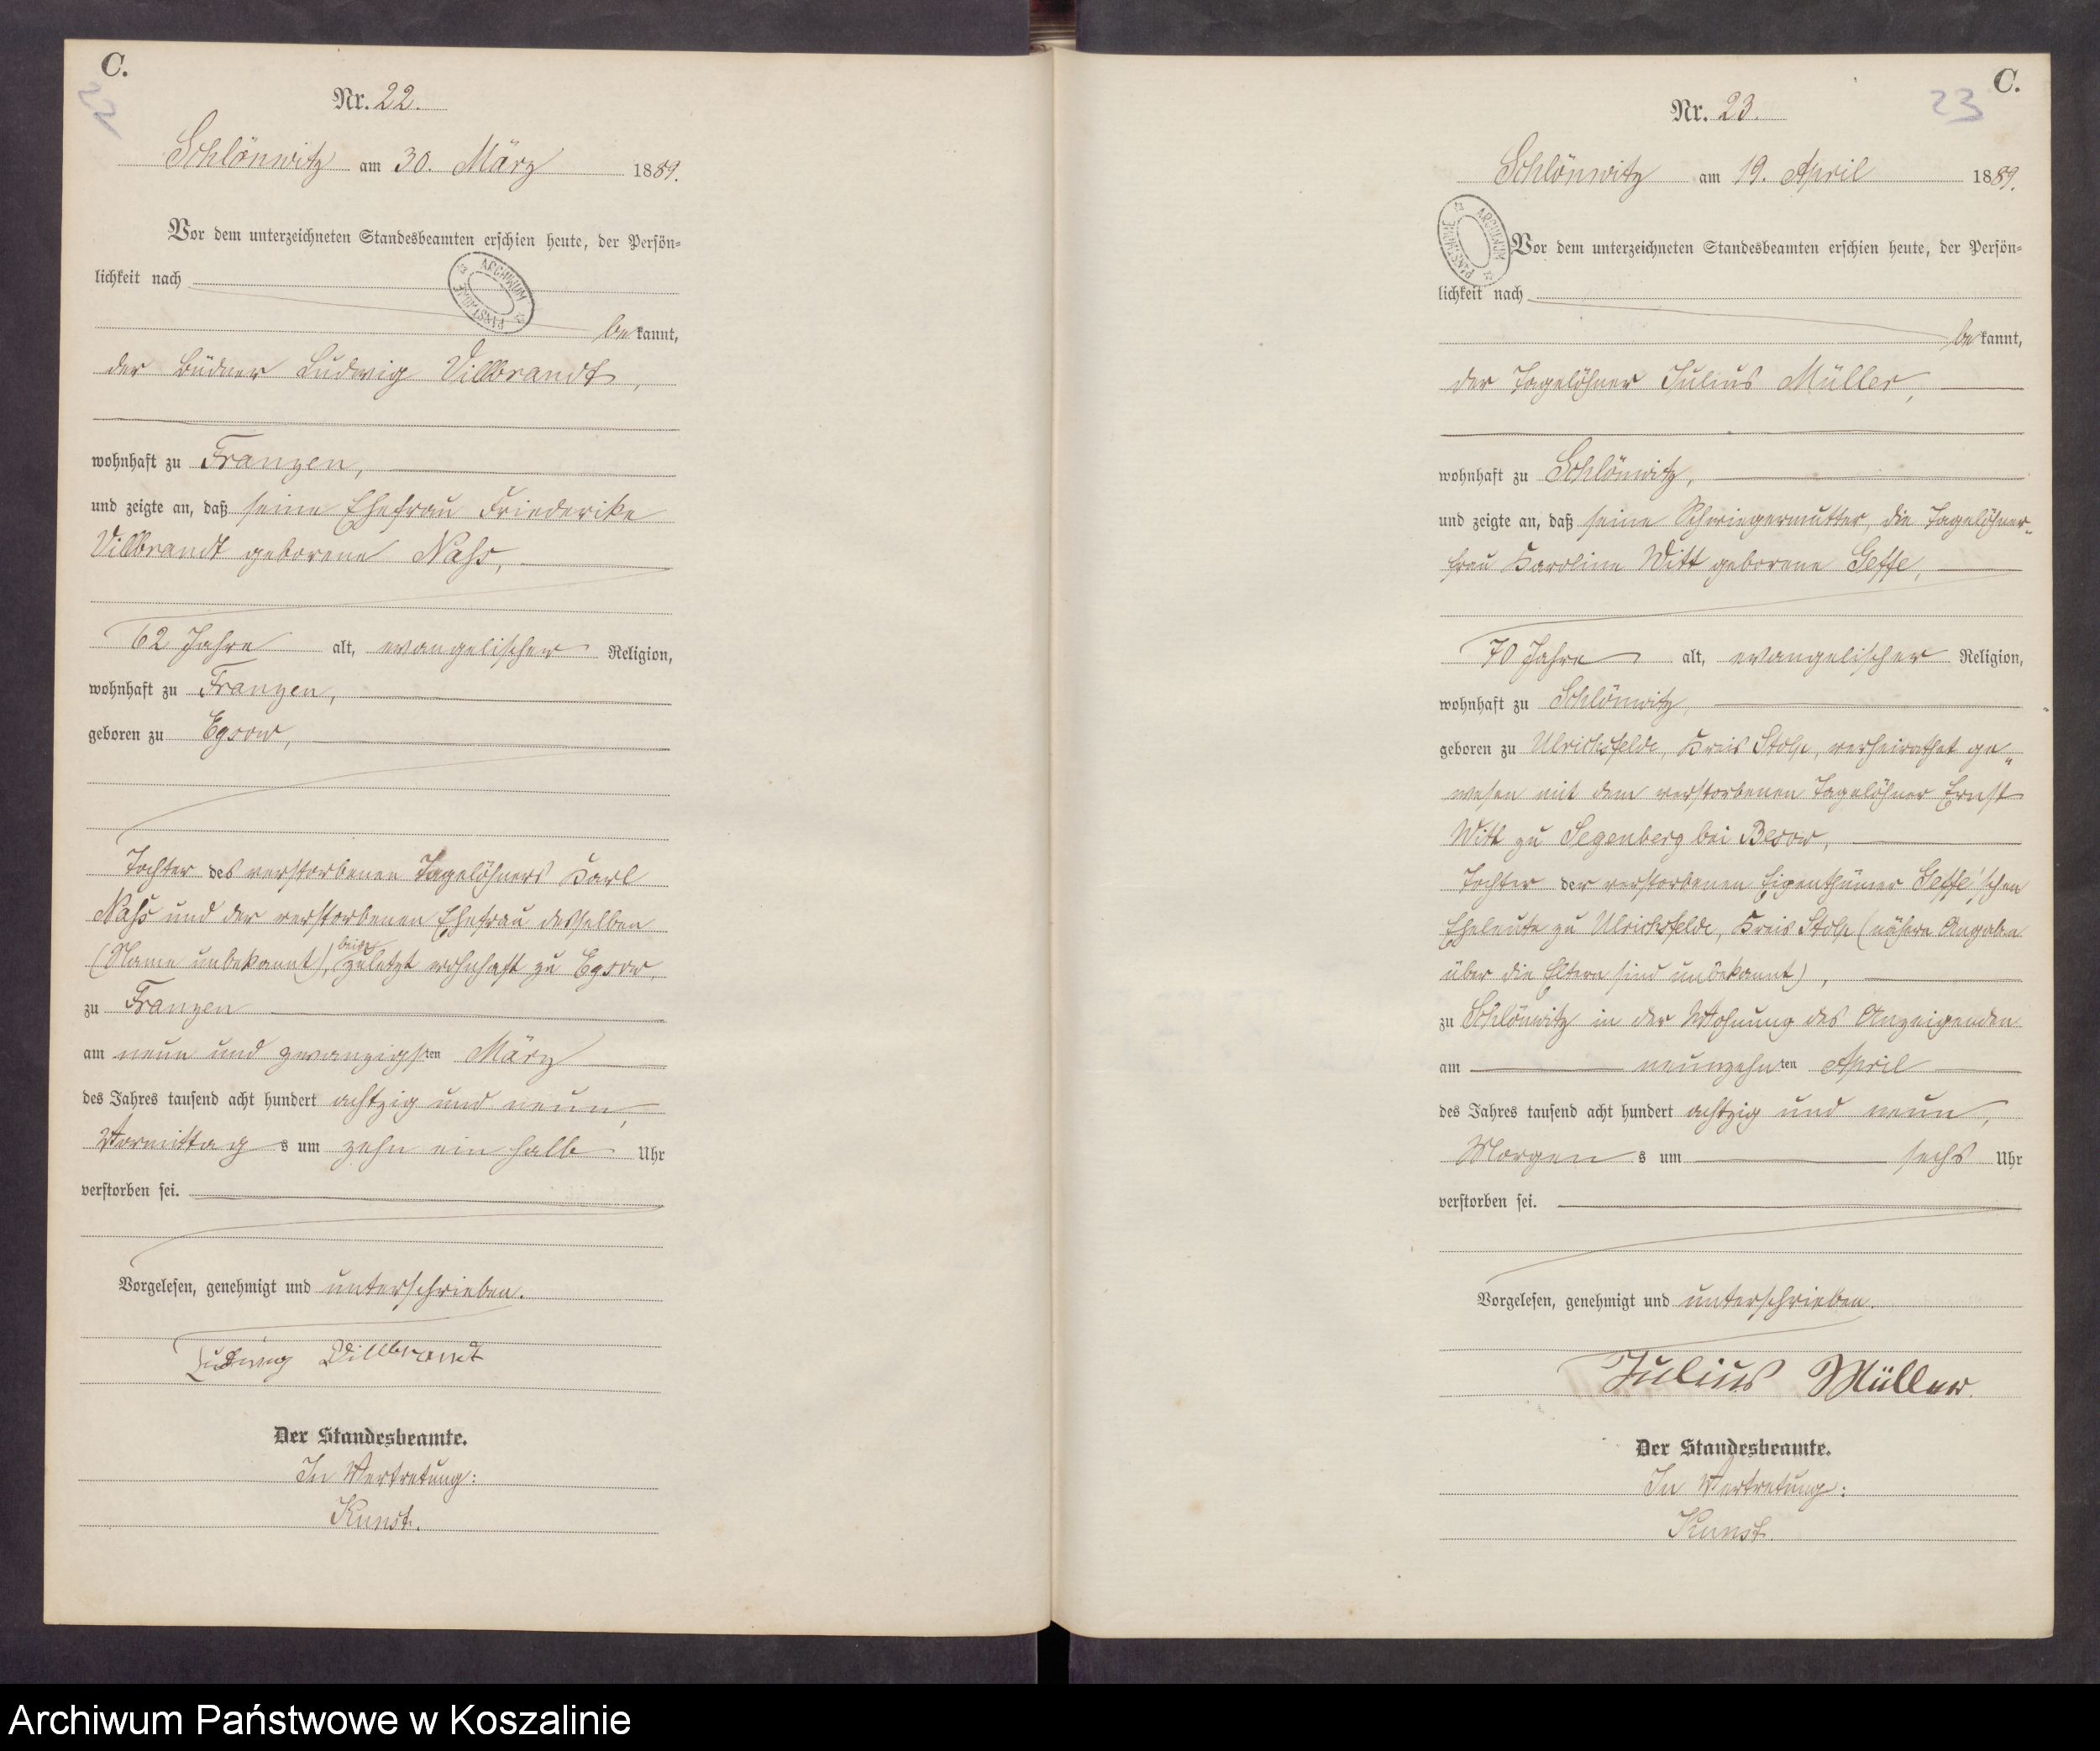 C.
22
Nr. 22.
Schlönwitz am 30. März 1889.
Vor dem unterzeichneten Standesbeamten erschien heute, der Persön=
lichkeit nach
ARCHIWUM PAŃSTWOWE
be kannt,
der Büdner Ludwig Villbrandt,
wohnhaft zu Franzen,
und zeigte an, daß seine Ehefrau Friederike
Villbrandt geborene Nahs,
62 Jahre alt, evangelischer Religion,
wohnhaft zu Franzen,
geboren zu Egsow,
Tochter des verstorbenen Tagelöhners Karl
Nahs und der verstorbenen Ehefrau desselben
(Name unbekannt), beide zuletzt wohnhaft zu Egsow,
zu Franzen
am neun und zwanzigsten März
des Jahres tausend acht hundert achtzig und neun,
Vormittag s um zehn ein halb Uhr
verstorben sei.
Vorgelesen, genehmigt und unterschrieben.
Ludwig Villbrandt
Der Standesbeamte.
In Vertretung:
Kunst.
C.
23
Nr. 23.
Schlönwitz am 19. April 1889.
ARCHIWUM PAŃSTWOWE
Vor dem unterzeichneten Standesbeamten erschien heute, der Persön=
lichkeit nach
be kannt,
der Tagelöhner Julius Müller,
wohnhaft zu Schlönwitz,
und zeigte an, daß seine Schwiegermutter, die Tagelöhner=
frau Karoline Witt geborene Geffe,
70 Jahre alt, evangelischer Religion,
wohnhaft zu Schlönwitz,
geboren zu Ulrichsfelde, Kreis Stolp, verheirathet ge=
wesen mit dem verstorbenen Tagelöhner Ernst
Witt zu Segenberg bei Besow,
Tochter der verstorbenen Eigenthümer Geffe'schen
Eheleute zu Ulrichsfelde, Kreis Stolp (nähere Angaben
über die Eltern sind unbekannt),
zu Schlönwitz in der Wohnung des Anzeigenden
am neunzehnten April
des Jahres tausend acht hundert achtzig und neun,
Morgen s um sechs Uhr
verstorben sei.
Vorgelesen, genehmigt und unterschrieben.
Julius Müller.
Der Standesbeamte.
In Vertretung:
Kunst.
Archiwum Państwowe w Koszalinie